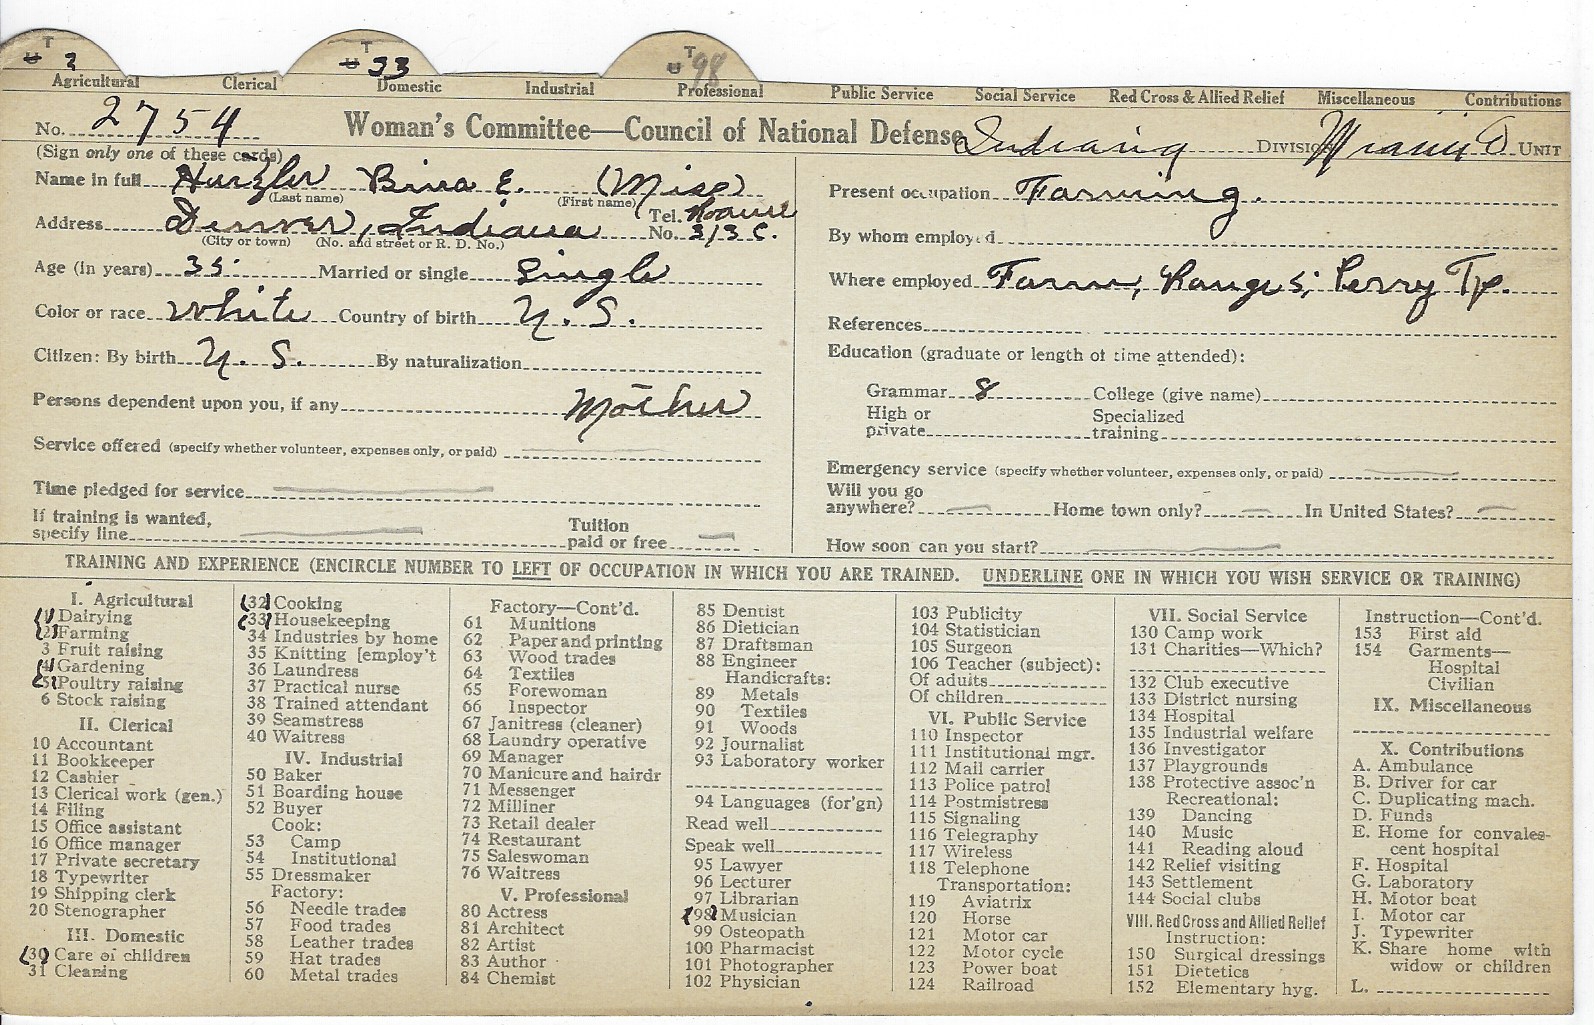 T T T
U 2 U 33 U 98
Agricultural Clerical Domestic Industrial Professional Public Service Social Service Red Cross & Allied Relief Miscellaneous Contributions
No. 2754 Woman's Committee—Council of National Defense Indiana DIVISION Miami Co UNIT
(Sign only one of these cards)
Name in full Hurzler Bina E. (Miss)
(Last name) (First name)
Address Denver, Indiana Tel. No. 313 C.
(City or town) (No. and street or R. D. No.)
Age (in years) 35 Married or single Single
Color or race White Country of birth U. S.
Citizen: By birth U. S. By naturalization
Persons dependent upon you, if any Mother
Service offered (specify whether volunteer, expenses only, or paid)
Time pledged for service
If training is wanted,
specify line
Tuition
paid or free
Present occupation Farming.
By whom employed
Where employed Farm, Range 5; Perry Tp.
References
Education (graduate or length of time attended):
Grammar 8 College (give name)
High or
private
Specialized
training
Emergency service (specify whether volunteer, expenses only, or paid)
Will you go
anywhere? Home town only? In United States?
How soon can you start?
TRAINING AND EXPERIENCE (ENCIRCLE NUMBER TO LEFT OF OCCUPATION IN WHICH YOU ARE TRAINED. UNDERLINE ONE IN WHICH YOU WISH SERVICE OR TRAINING)
I. Agricultural
(1) Dairying
(2) Farming
3 Fruit raising
(4) Gardening
(5) Poultry raising
6 Stock raising
II. Clerical
10 Accountant
11 Bookkeeper
12 Cashier
13 Clerical work (gen.)
14 Filing
15 Office assistant
16 Office manager
17 Private secretary
18 Typewriter
19 Shipping clerk
20 Stenographer
III. Domestic
(30) Care of children
31 Cleaning
(32) Cooking
(33) Housekeeping
34 Industries by home
35 Knitting [employ't
36 Laundress
37 Practical nurse
38 Trained attendant
39 Seamstress
40 Waitress
IV. Industrial
50 Baker
51 Boarding house
52 Buyer
Cook:
53 Camp
54 Institutional
55 Dressmaker
Factory:
56 Needle trades
57 Food trades
58 Leather trades
59 Hat trades
60 Metal trades
Factory—Cont'd.
61 Munitions
62 Paper and printing
63 Wood trades
64 Textiles
65 Forewoman
66 Inspector
67 Janitress (cleaner)
68 Laundry operative
69 Manager
70 Manicure and hairdr
71 Messenger
72 Milliner
73 Retail dealer
74 Restaurant
75 Saleswoman
76 Waitress
V. Professional
80 Actress
81 Architect
82 Artist
83 Author
84 Chemist
85 Dentist
86 Dietician
87 Draftsman
88 Engineer
Handicrafts:
89 Metals
90 Textiles
91 Woods
92 Journalist
93 Laboratory worker
94 Languages (for'gn)
Read well
Speak well
95 Lawyer
96 Lecturer
97 Librarian
(98) Musician
99 Osteopath
100 Pharmacist
101 Photographer
102 Physician
103 Publicity
104 Statistician
105 Surgeon
106 Teacher (subject):
Of adults
Of children
VI. Public Service
110 Inspector
111 Institutional mgr.
112 Mail carrier
113 Police patrol
114 Postmistress
115 Signaling
116 Telegraphy
117 Wireless
118 Telephone
Transportation:
119 Aviatrix
120 Horse
121 Motor car
122 Motor cycle
123 Power boat
124 Railroad
VII. Social Service
130 Camp work
131 Charities—Which?
132 Club executive
133 District nursing
134 Hospital
135 Industrial welfare
136 Investigator
137 Playgrounds
138 Protective assoc'n
Recreational:
139 Dancing
140 Music
141 Reading aloud
142 Relief visiting
143 Settlement
144 Social clubs
VIII. Red Cross and Allied Relief
Instruction:
150 Surgical dressings
151 Dietetics
152 Elementary hyg.
Instruction—Cont'd.
153 First aid
154 Garments—
Hospital
Civilian
IX. Miscellaneous
X. Contributions
A. Ambulance
B. Driver for car
C. Duplicating mach.
D. Funds
E. Home for convales-
cent hospital
F. Hospital
G. Laboratory
H. Motor boat
I. Motor car
J. Typewriter
K. Share home with
widow or children
L.